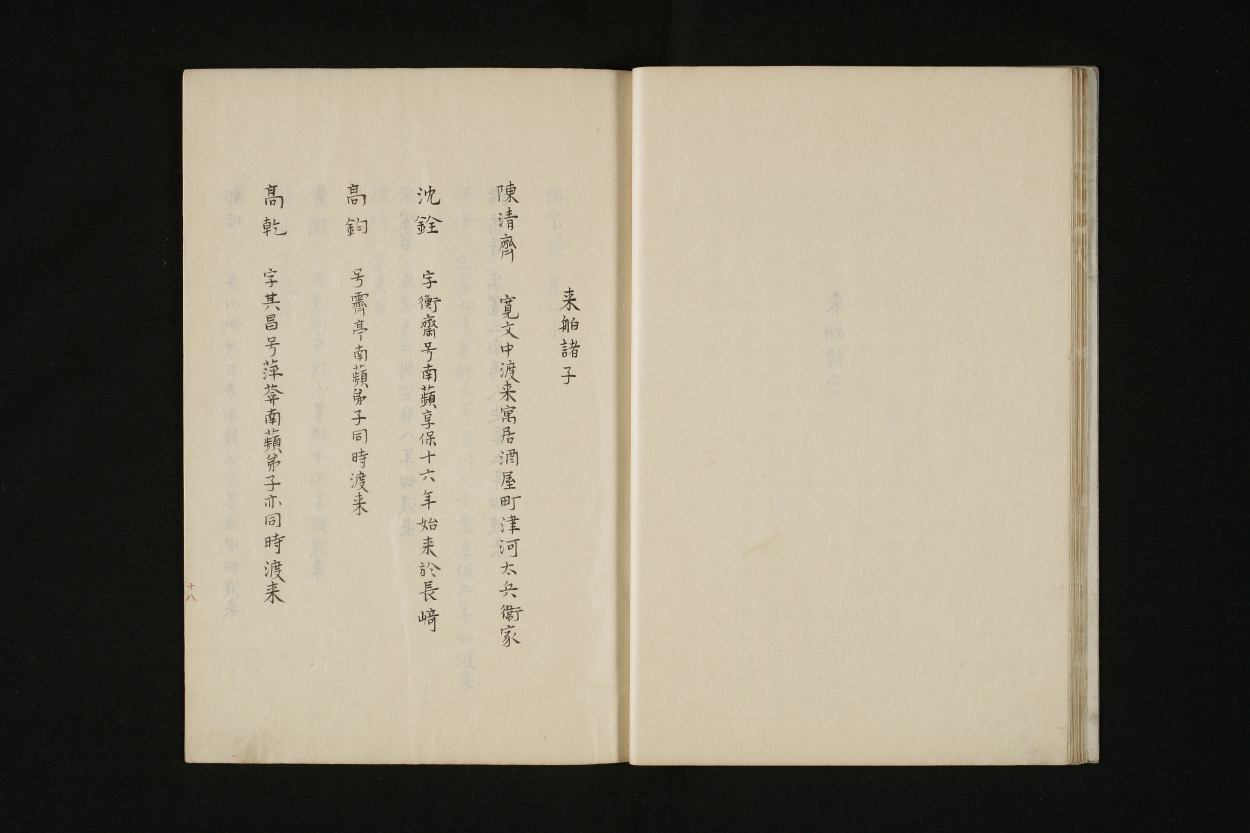 来舶諸子
陳清齊 寛文中渡来寓居酒屋町津河太兵衛家
沈銓 字衡齋号南蘋享保十六年始来於長﨑
高鈞 号霽亭南蘋弟子同時渡来
高乾 字其昌号萍菴南蘋弟子亦同時渡来
十八